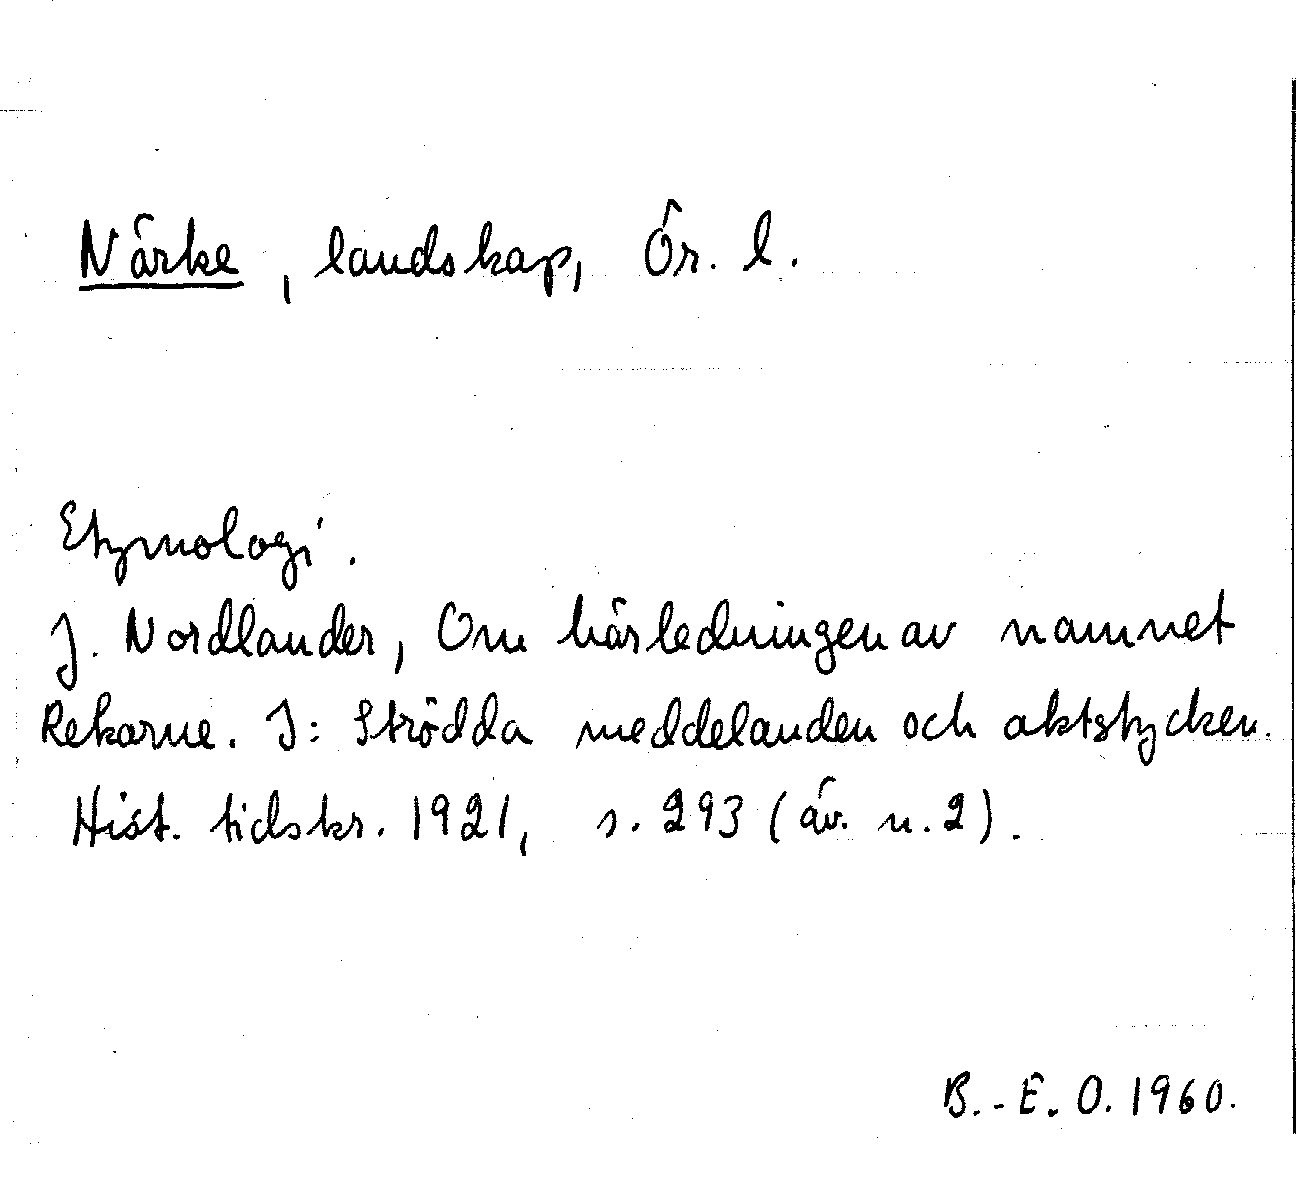 Närke, landskap, Ör. l.
Etymologi.
J. Nordlander, Om härledningen av namnet
Rekarne. I: Strödda meddelanden och aktstycken.
Hist. tidskr. 1921, s. 293 (äv. n. 2).
B.-E. O. 1960.